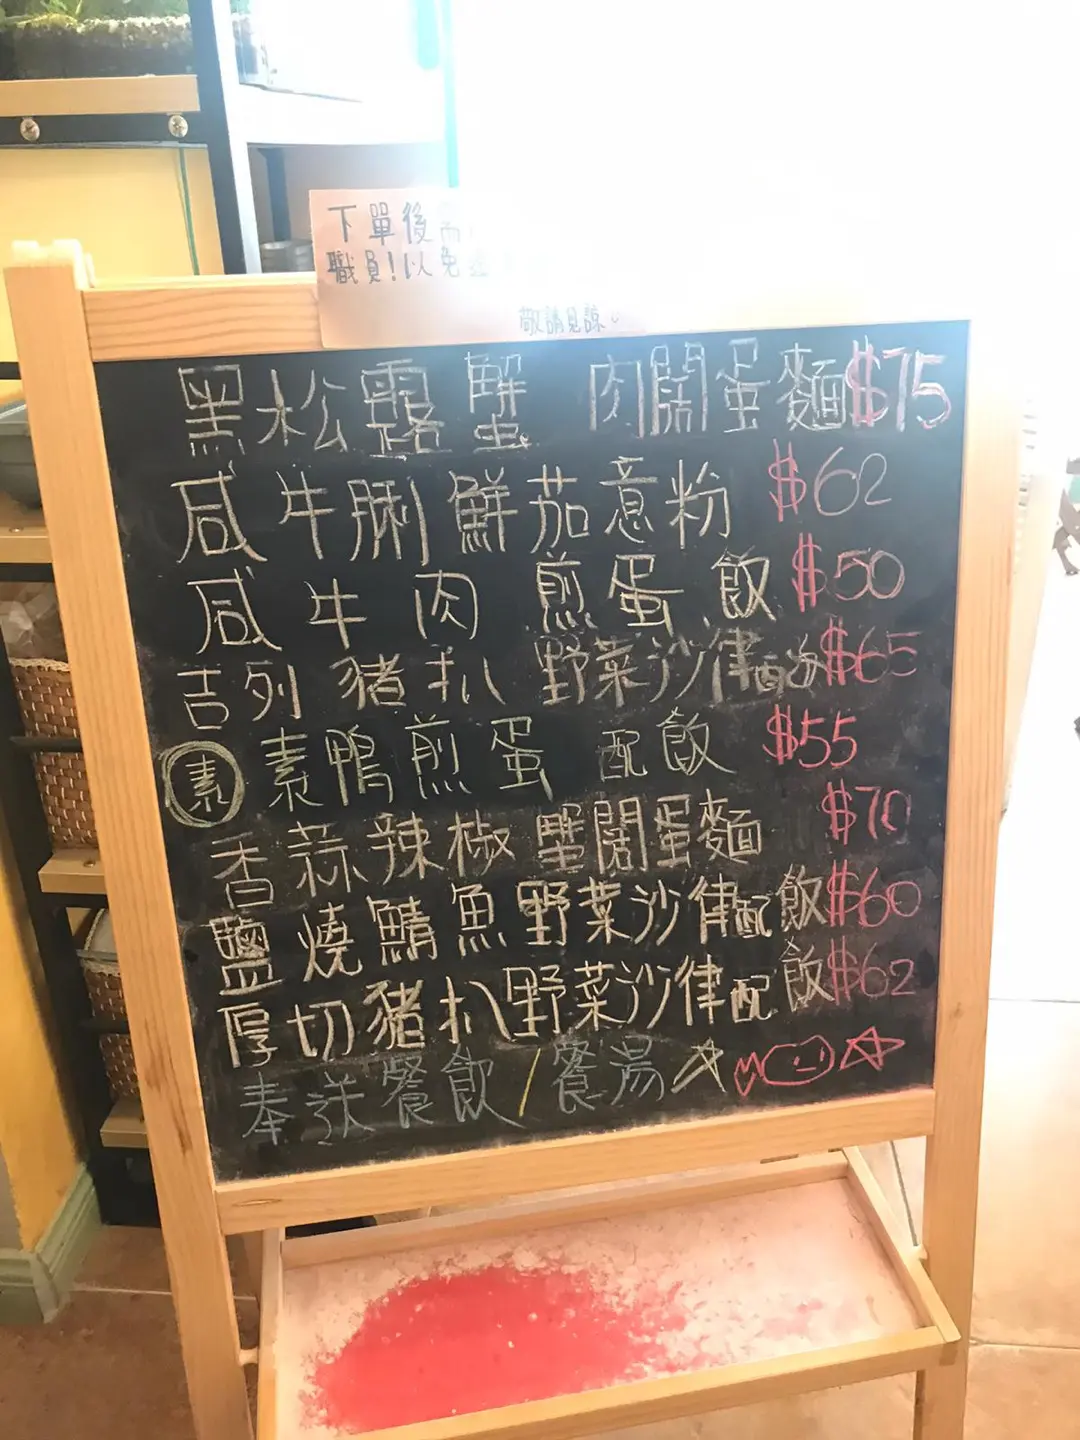 下單後需
職員!以免
敬請見諒
黑松露蟹 肉闊蛋麵$75
咸牛脷鮮茄意粉 $62
咸牛肉煎蛋飯 $50
吉列豬扒野菜沙律配飯$65
素 素鴨煎蛋配飯 $55
香蒜辣椒蟹闊蛋麵 $70
鹽燒鯖魚野菜沙律配飯$60
厚切豬扒野菜沙律配飯$62
奉送餐飲/餐湯